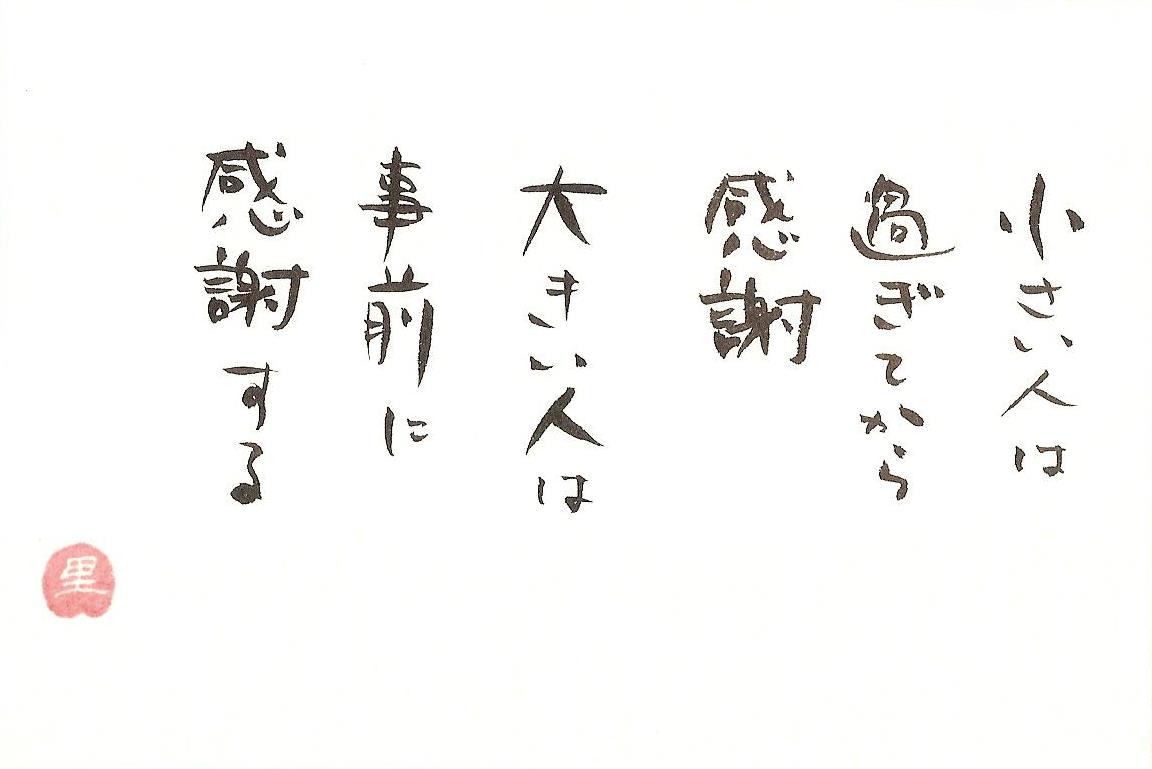 小さい人は
過ぎてから
感謝
大きい人は
事前に
感謝する
里